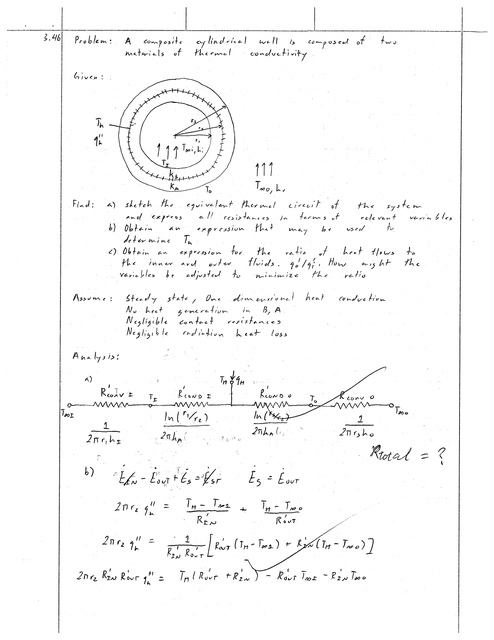 3.46 Problem: A composite cylindrical wall is composed of two
materials of thermal conductivity
Given:
Th
q"h
r3
T∞i, hi
TI
kB
kA
To
T∞o, ho
Find: a) sketch the equivalent thermal circuit of the system
and express all resistances in terms of relevant variables
b) Obtain an expression that may be used to
determine Th
c) Obtain an expression for the ratio of heat flows to
the inner and outer fluids. qo'/qi'. How might the
variables be adjusted to minimize the ratio
Assume: Steady state, One dimensional heat conduction
No heat generation in B, A
Negligible contact resistances
Negligible radiation heat loss
Analysis:
a)
TH qH
R'CONV I R'COND I R'COND O RCONV O
T∞I TI To T∞o
1/2πr1hI ln( / )/2π ln( / )/2π 1/2πr3ho
Rtotal = ?
b) ĖIN - ĖOUT + Ėg = ĖST Ėg = ĖOUT
2πr2 q"h = TH - T∞I / R'IN + TH - T∞O / R'OUT
2πr2 q"h = 1 / R'IN R'OUT [R'OUT (TH - T∞I) + R'IN (TH - T∞O)]
2πr2 R'IN R'OUT q"h = TH (R'OUT + R'IN) - R'OUT T∞I - R'IN T∞O